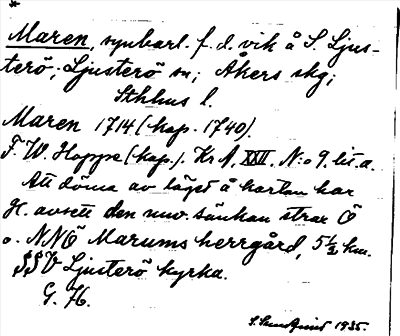 *
Maren, synbarl. f. d. vik å S. Ljus-
terö; Ljusterö sn; Åkers skg;
Sthlms l.
Maren 1714 (kop. 1740).
F. W. Hoppe (kop.). Kr A, XXII, N:o 9. lit. a.
Att döma av läget å kartan har
H. avsett den nuv. sänkan strax Ö
o. NNÖ Marums herrgård, 5 1/2 km.
SSV Ljusterö kyrka.
G. H.
1935.